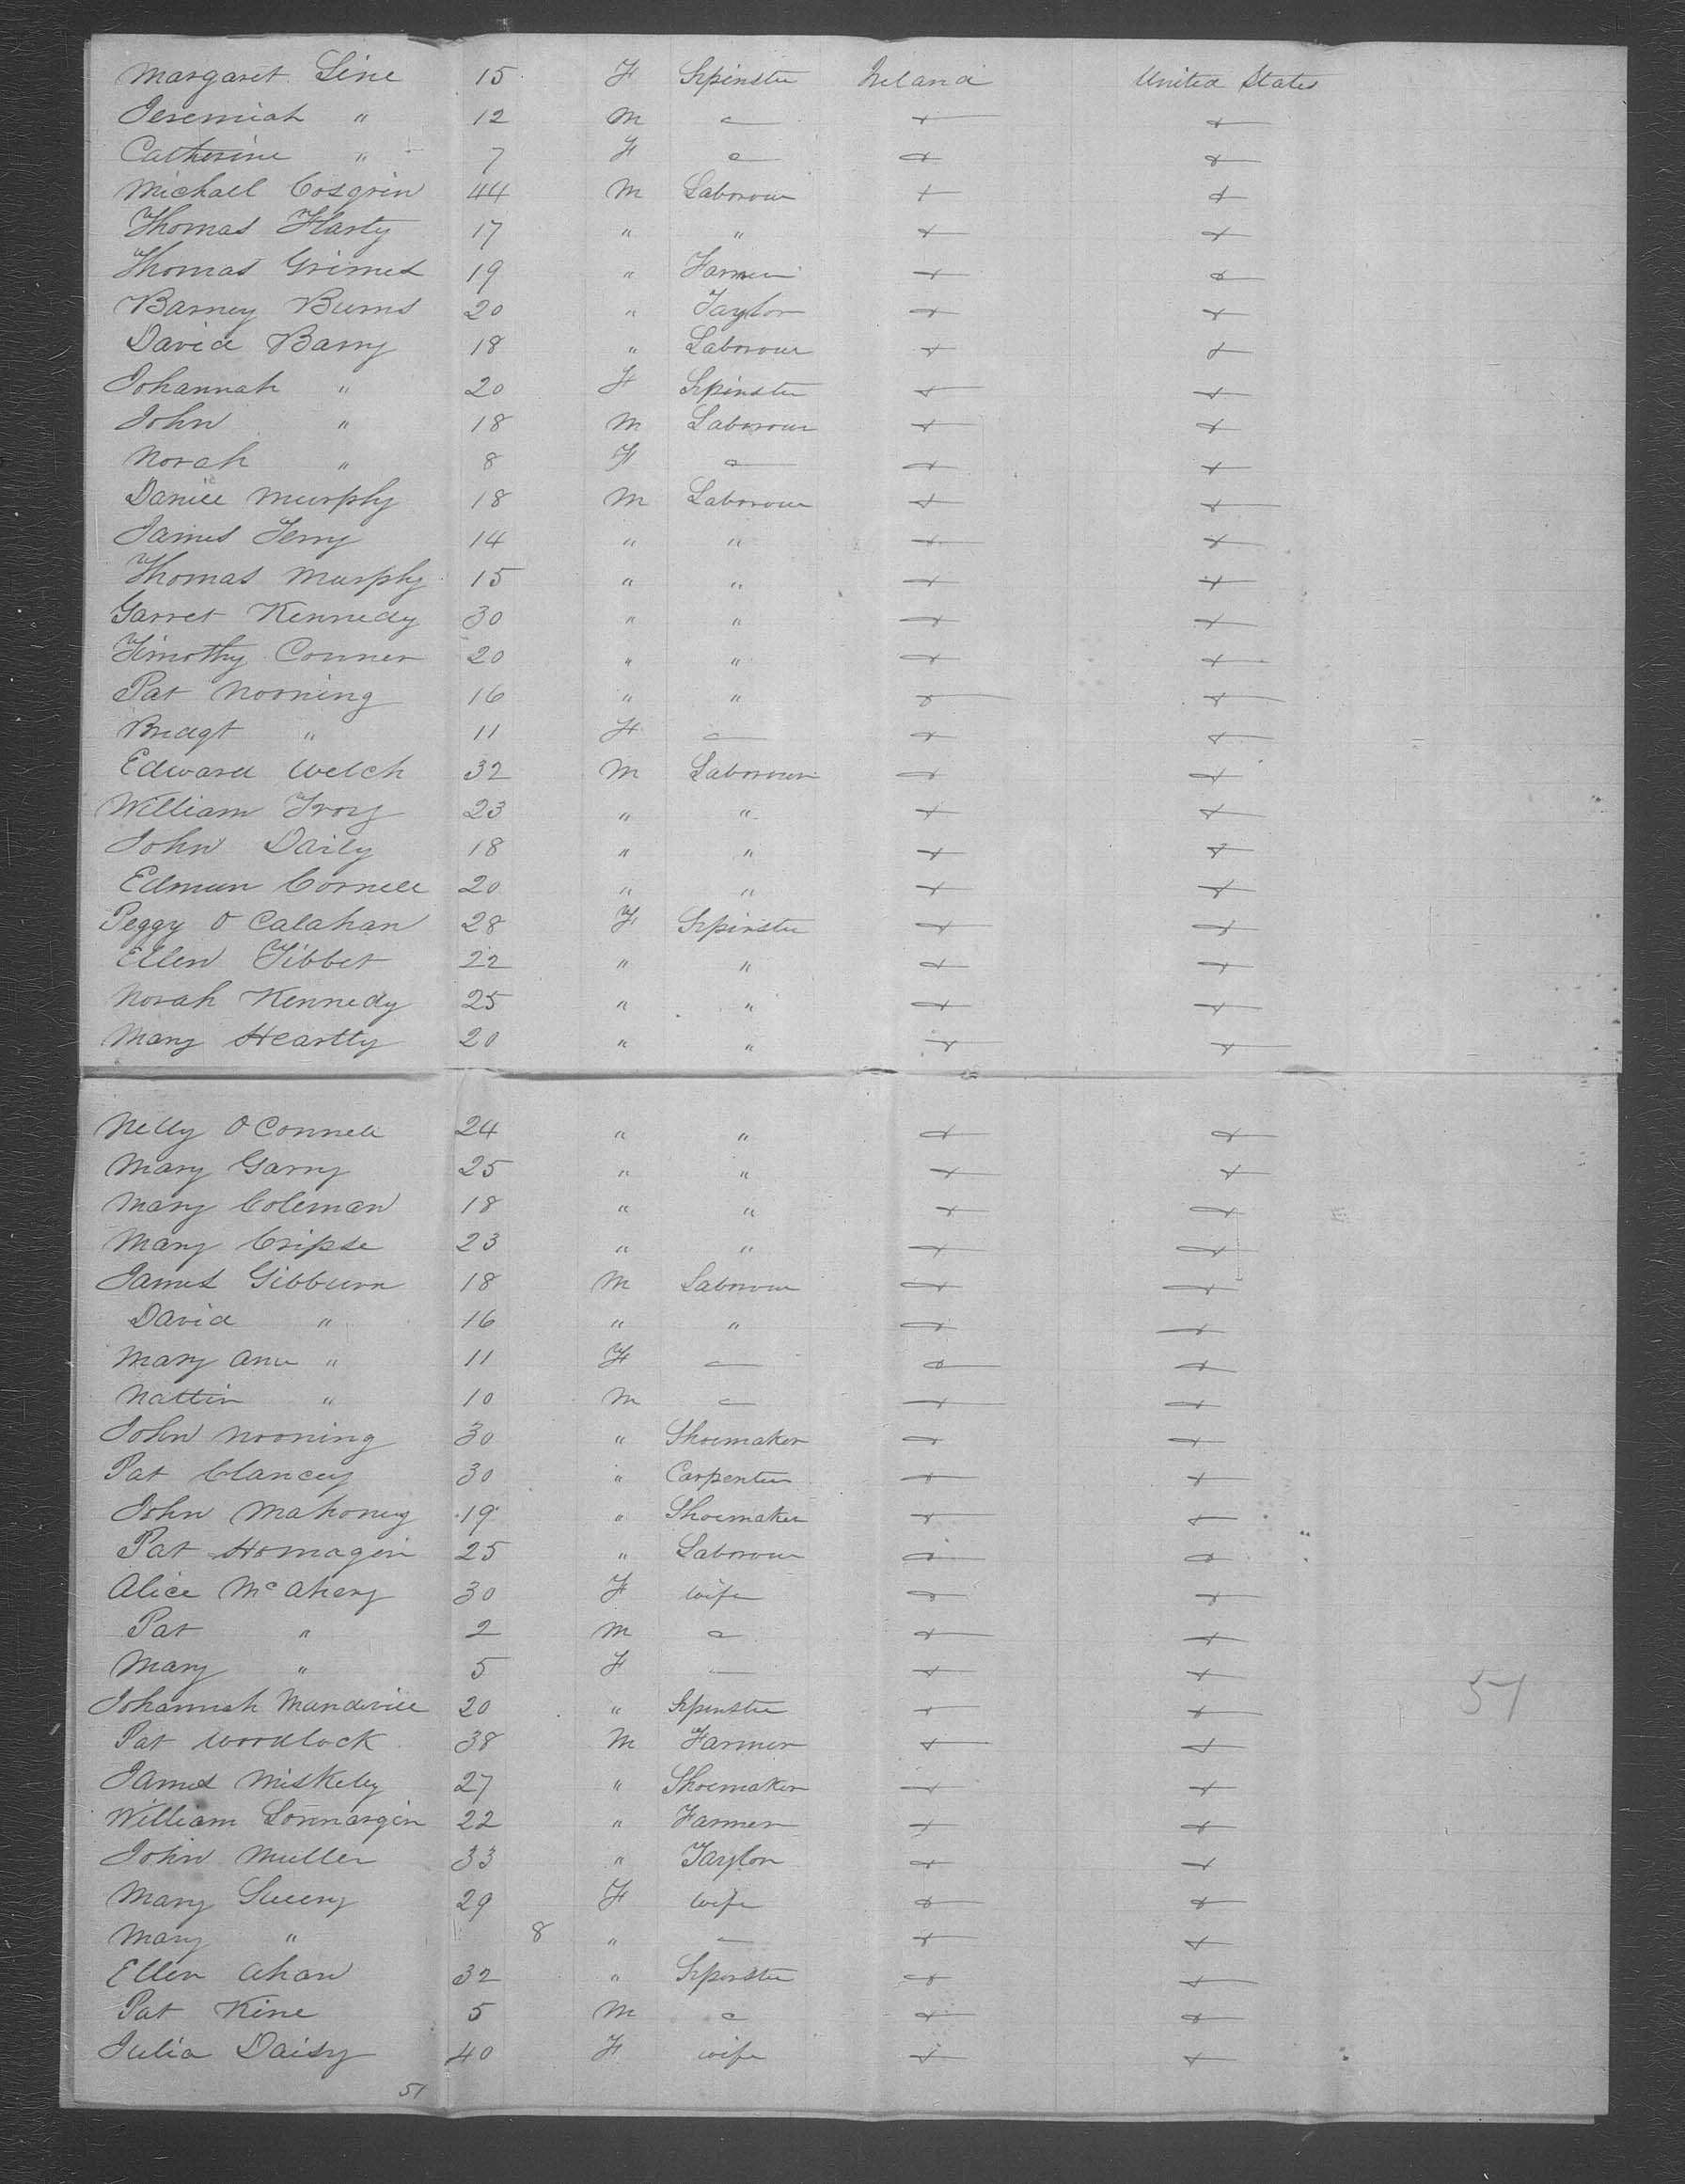 Margaret Line 15 F Spinster Ireland United States
Jeremiah " 12 M
Catherine " 7 F
Michall Cosgrin 44 M Laborour
Thomas Harty 17 " "
Thomas Grimes 19 " Farmer
Barney Burns 20 " Taylor
David Barry 18 " Laborour
Johannah " 20 F Spinster
John " 18 M Laborour
Norah " 8 F
Daniel Murphy 18 M Laborour
James Terry 14 " "
Thomas Murphy 15 " "
Garret Kennedy 30 " "
Timothy Conner 20 " "
Pat Nooning 16 " "
Bridgt " 11 F
Edward Welch 32 M Laborour
William Ivory 23 " "
John Daily 18 " "
Edmun Connell 20 " "
Peggy O Calahan 28 F Spinster
Ellen Tibbet 22 " "
Norah Kennedy 25 " "
Mary Heartty 20 " "
Nelly O Connell 24 " "
Mary Garry 25 " "
Mary Coleman 18 " "
Mary Cripse 23 " "
James Gibburn 18 M Laborour
David " 16 " "
Mary Ann " 11 F
Nattin " 10 M
John Nooning 30 " Shoemaker
Pat Clancey 30 " Carpenter
John Mahoney 19 " Shoemaker
Pat Homagin 25 " Laborour
Alice Mc Ahery 30 F Wife
Pat " 2 M
Mary " 5 F
Johannah Mandevill 20 " Spinster
Pat Woodlock 38 M Farmer
James Miskely 27 " Shoemaker
William Lonnargin 22 " Farmer
John Muller 33 " Taylor
Mary Sueeny 29 F Wife
Mary " 8 "
Ellen Ahan 32 " Spinster
Pat Kine 5 M
Julia Daisy 40 F Wife
51
51